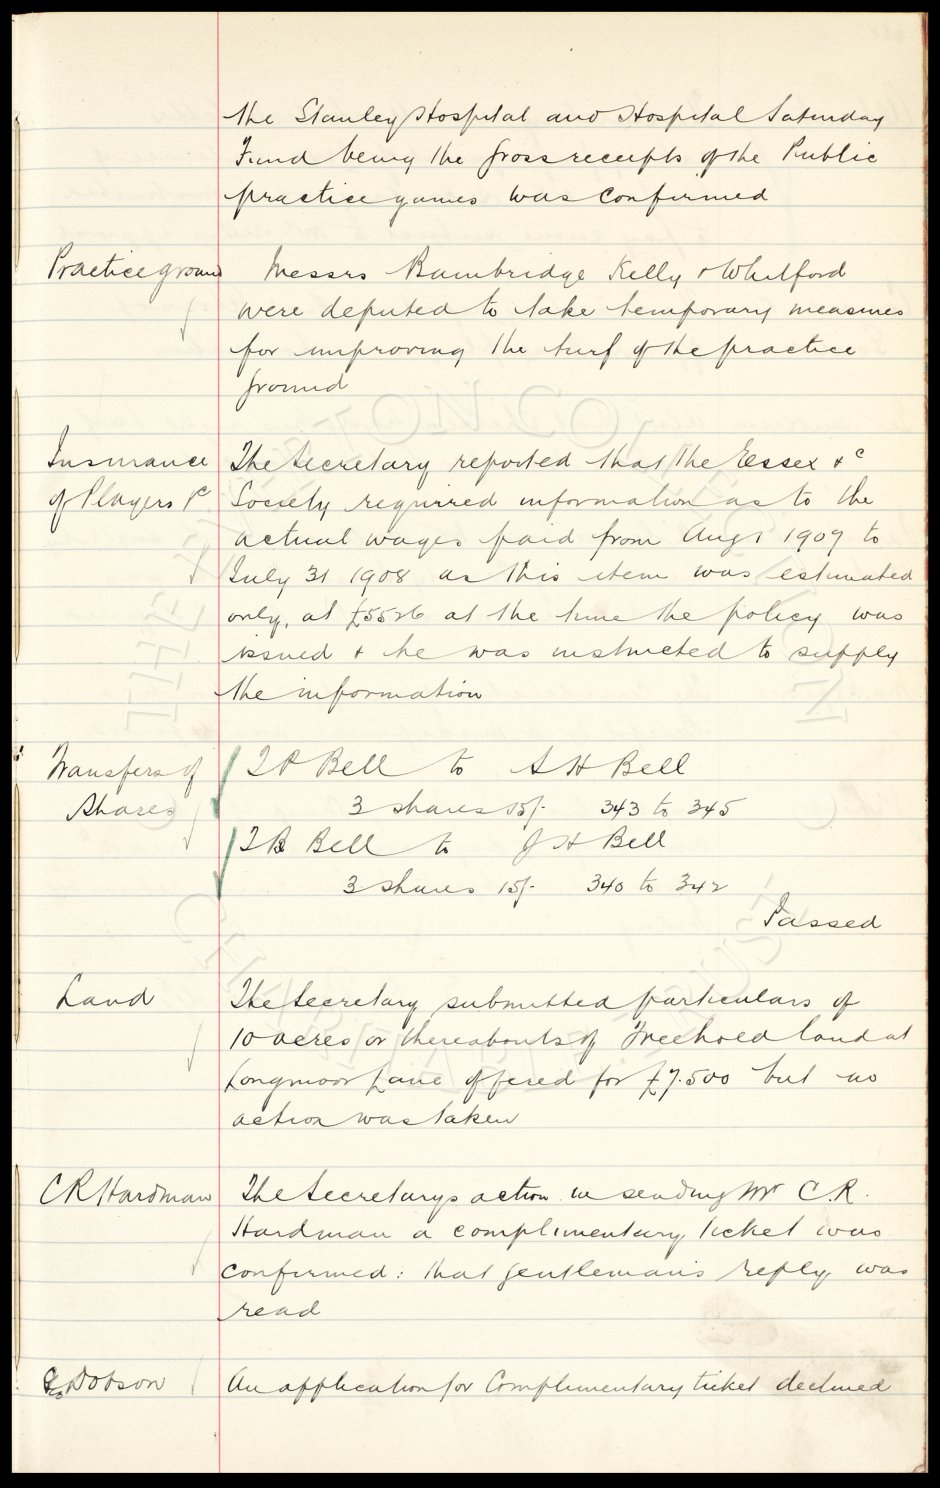 the Stanley Hospital and Hospital Saturday
Fund being the gross receipts of the Public
practice games was confirmed
Practice ground
Messrs Bambridge Kelly & Whitford
were deputed to take temporary measures
for improving the turf of the practice
ground
Insurance
of Players &c
The Secretary reported that the Essex &c
Society required information as to the
actual wages paid from Aug 1 1907 to
July 31 1908 as this item was estimated
only, at £5526 at the time the policy was
issued & he was instructed to supply
the information
Transfers of
Shares
T P Bell to A H Bell
3 shares 15/- 343 to 345
T B Bell to J H Bell
3 shares 15/- 340 to 342
Passed
Land
The Secretary submitted particulars of
10 acres or thereabouts of Freehold land at
Longmoor Lane offered for £7.500 but no
action was taken
C R Hardman
The Secretarys action in sending Mr C.R.
Hardman a complimentary ticket was
confirmed: that gentleman's reply was
read
Dobson
An application for Complimentary ticket declined
THE EVERTON COLLECTION
CHARITABLE TRUST